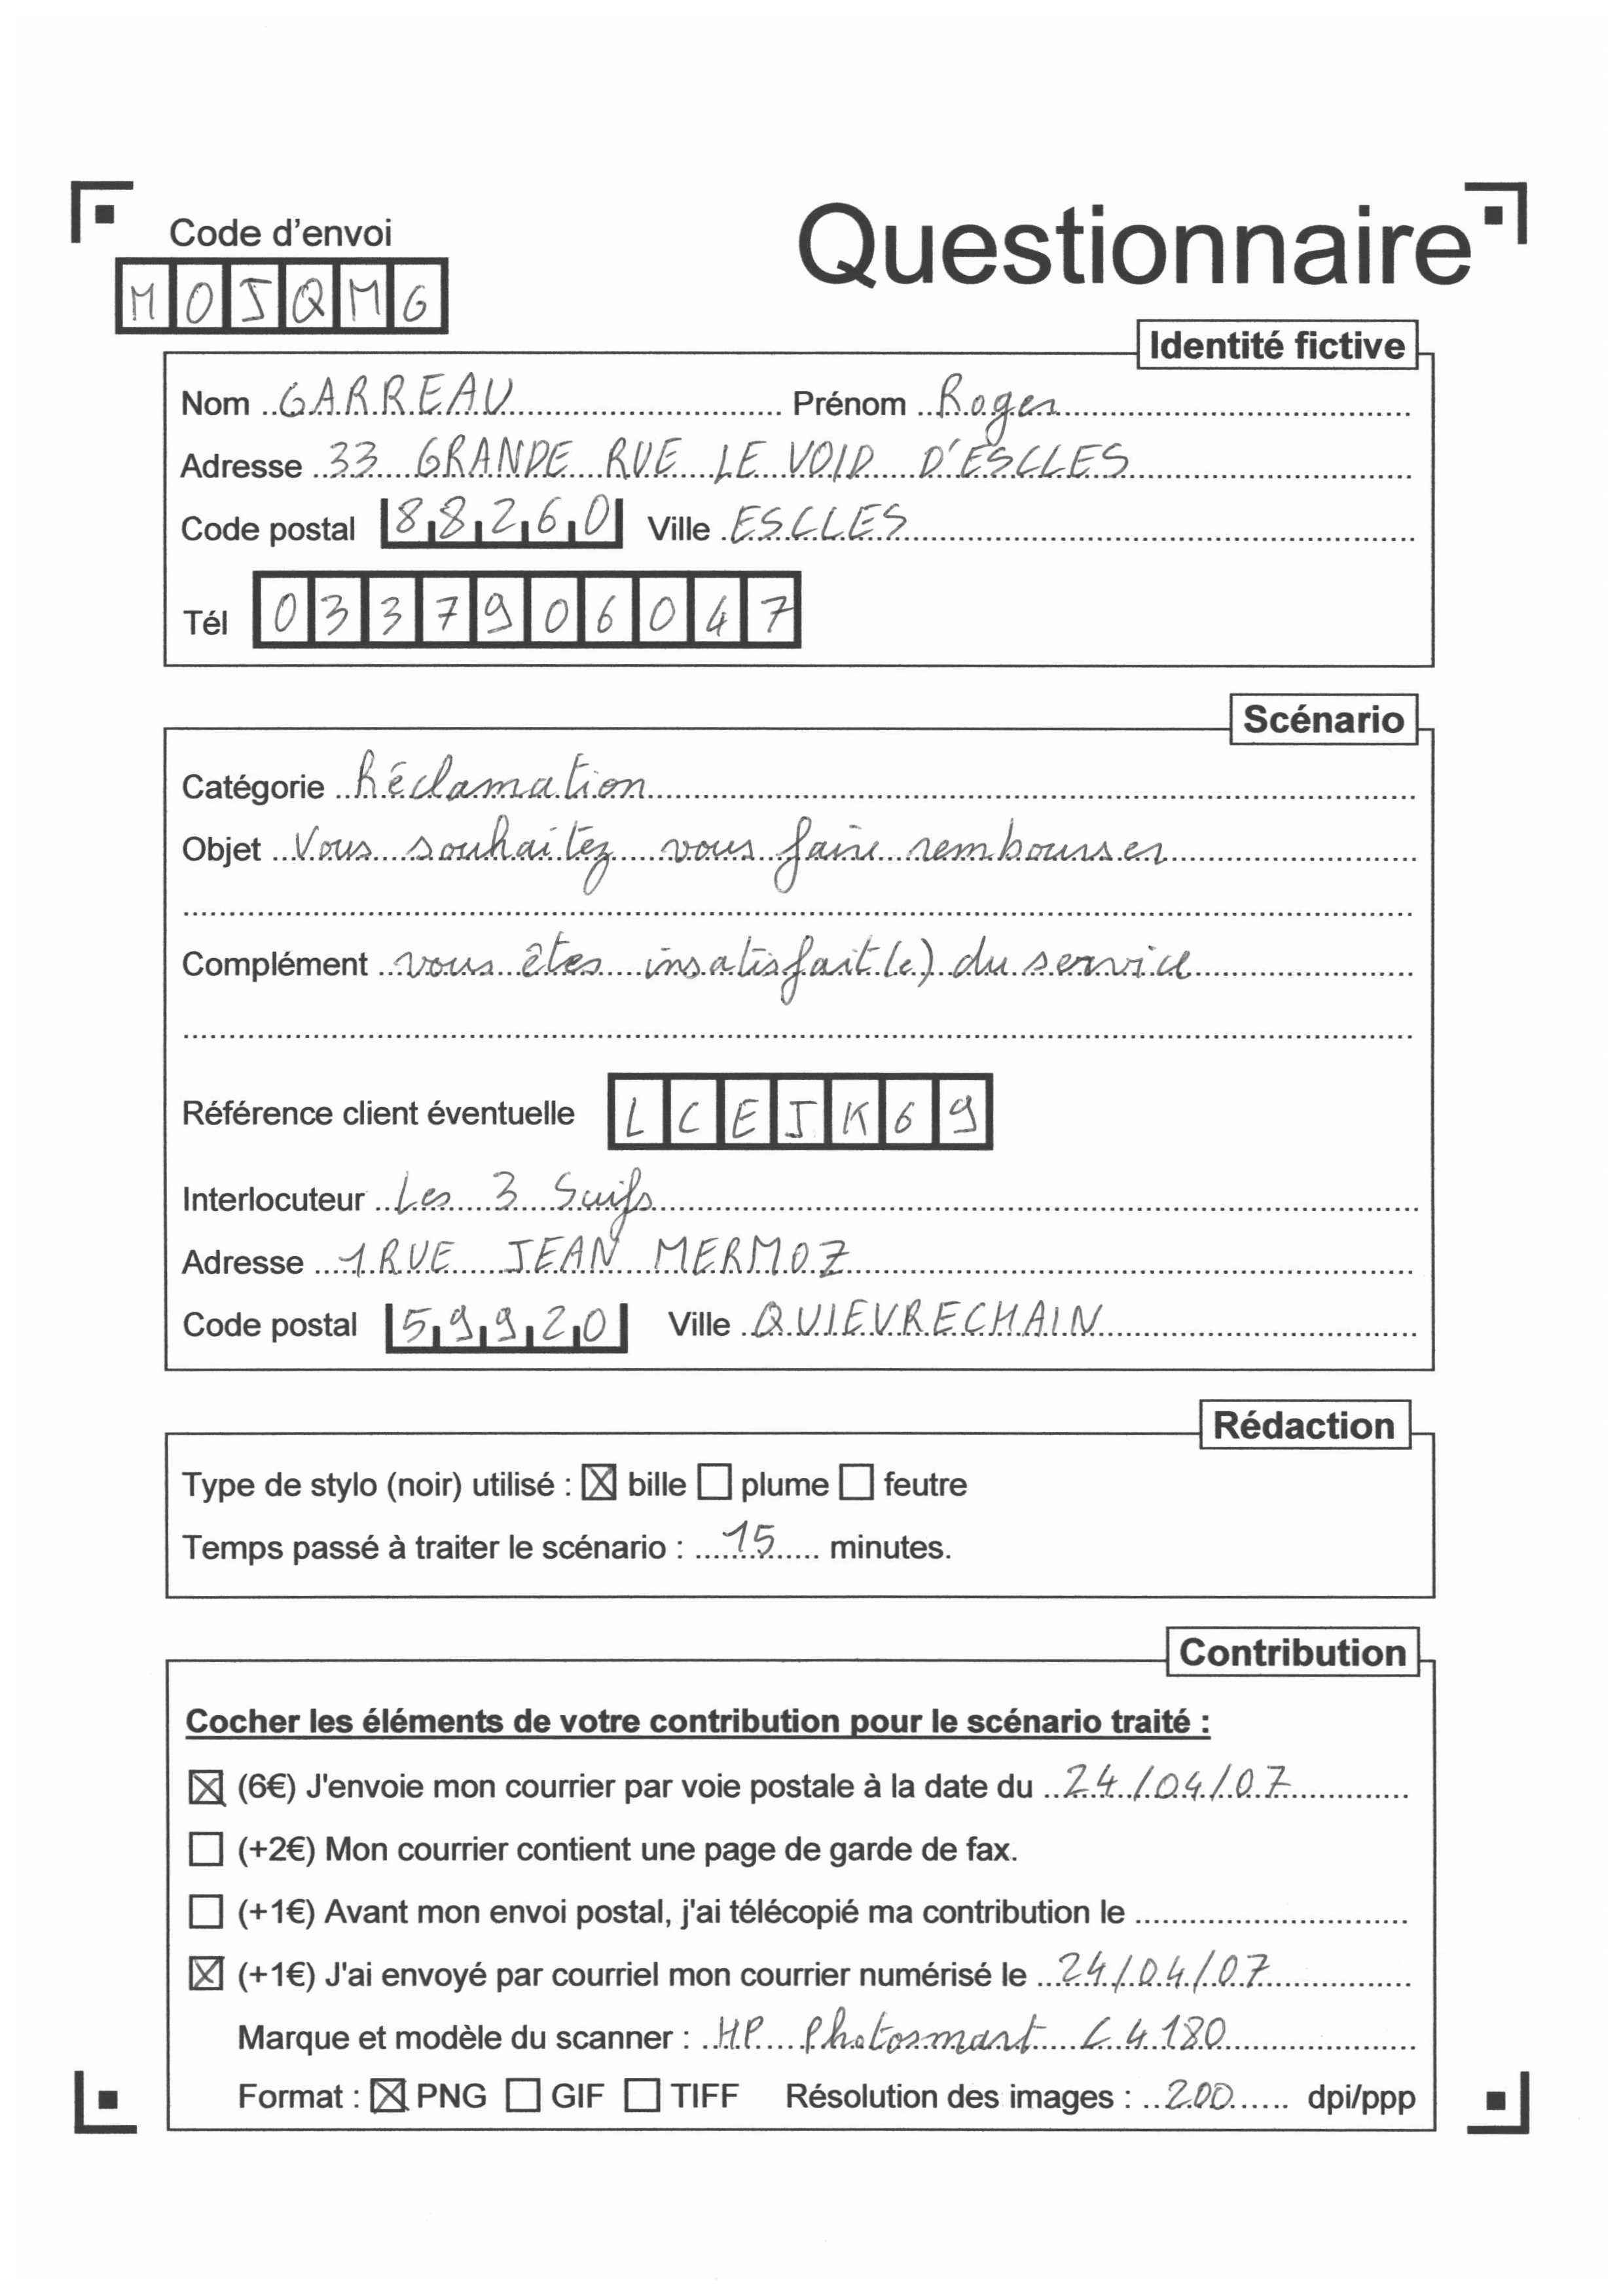 Code d'envoi
Questionnaire
M0JQMG
Identité fictive
Nom GARREAU Prénom Roger
Adresse 33 GRANDE RUE LE VOID D'ESCLES
Code postal 88260 Ville ESCLES
Tél 0337906047
Scénario
Catégorie Réclamation
Objet Vous souhaitez vous faire rembourser
Complément vous êtes insatisfait(e) du service
Référence client éventuelle LCEJK69
Interlocuteur Les 3 Suifs
Adresse 1 RUE JEAN MERMOZ
Code postal 59920 Ville QUIEVRECHAIN
Rédaction
Type de stylo (noir) utilisé : ☒ bille ☐ plume ☐ feutre
Temps passé à traiter le scénario : 15 minutes.
Contribution
Cocher les éléments de votre contribution pour le scénario traité :
☒ (6€) J'envoie mon courrier par voie postale à la date du 24/04/07
☐ (+2€) Mon courrier contient une page de garde de fax.
☐ (+1€) Avant mon envoi postal, j'ai télécopié ma contribution le
☒ (+1€) J'ai envoyé par courriel mon courrier numérisé le 24/04/07
Marque et modèle du scanner : HP Photosmart C4180
Format : ☒ PNG ☐ GIF ☐ TIFF Résolution des images : 200 dpi/ppp